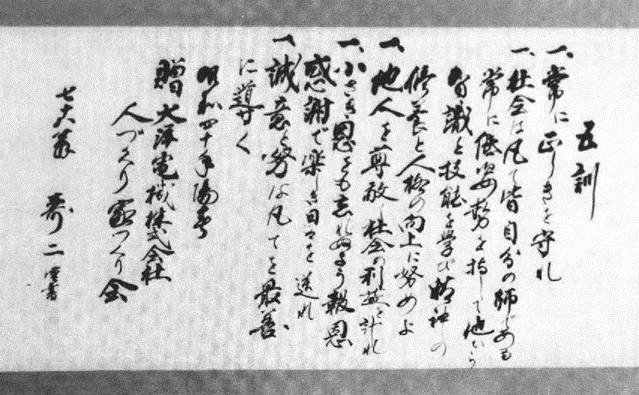 五訓
一、常に正しきを守れ
一、社会は凡て皆自分の師である
常に低姿勢を持して他から
智識と技能を学び精神の
修養と人格の向上に努めよ
一、他人を尊敬し社会の利益を計れ
一、小さき恩をも忘れぬよう報恩
感謝で楽しき日々を送れ
一、誠意と努力は凡てを最善
に導く
昭和四十年陽春
贈 大洋電機株式会社
人づくり家づくり会
七六翁 寿二